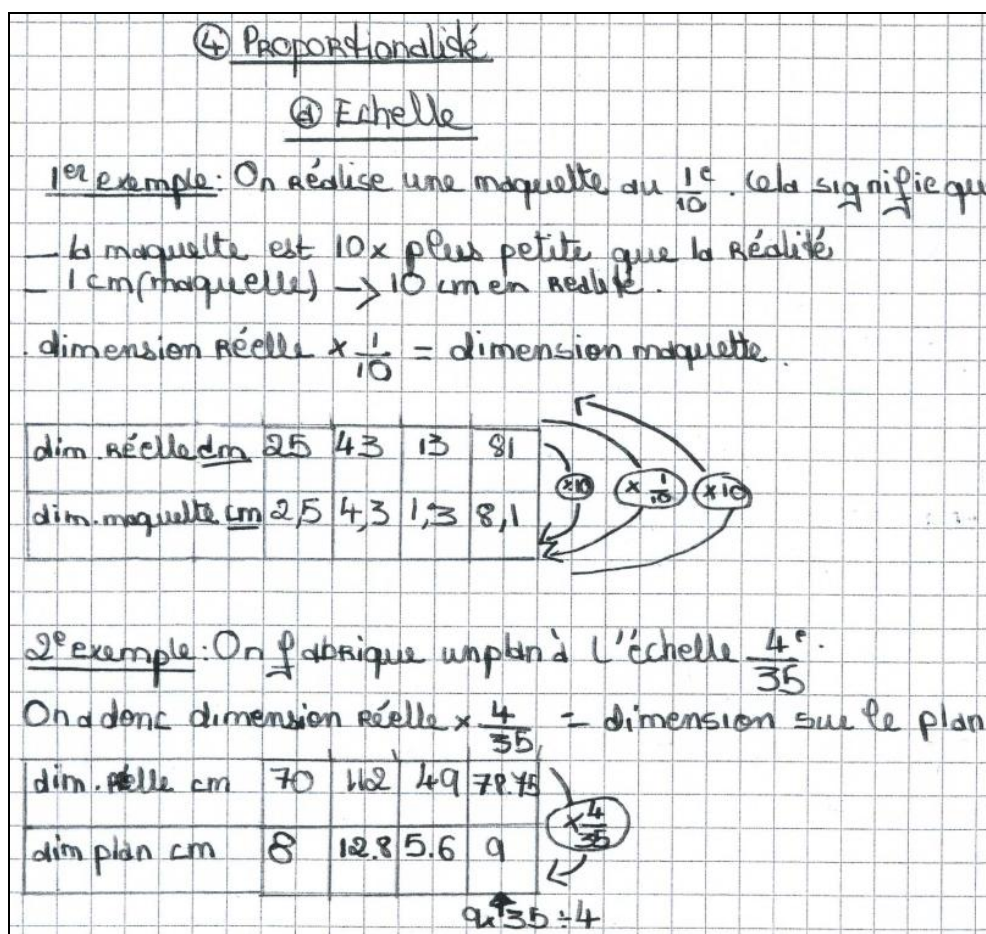 ④ PROPORtionalité
ⓓ Echelle
1er exemple: On Réalise une maquette au 1/10e. Cela signifie qu
— la maquette est 10x plus petite que la Réalité
— 1 cm (maquette) → 10 cm en Réalité.
. dimension Réelle × 1/10 = dimension maquette.
dim. Réelle cm 25 43 13 81
×10 × 1/10 ×10
dim. maquette cm 2,5 4,3 1,3 8,1
2e exemple: On fabrique un plan à l'échelle 4/35e.
On a donc dimension Réelle × 4/35 = dimension sur le plan
dim. Réelle cm 70 112 49 78.75
× 4/35
dim plan cm 8 12.8 5.6 9
9×35÷4